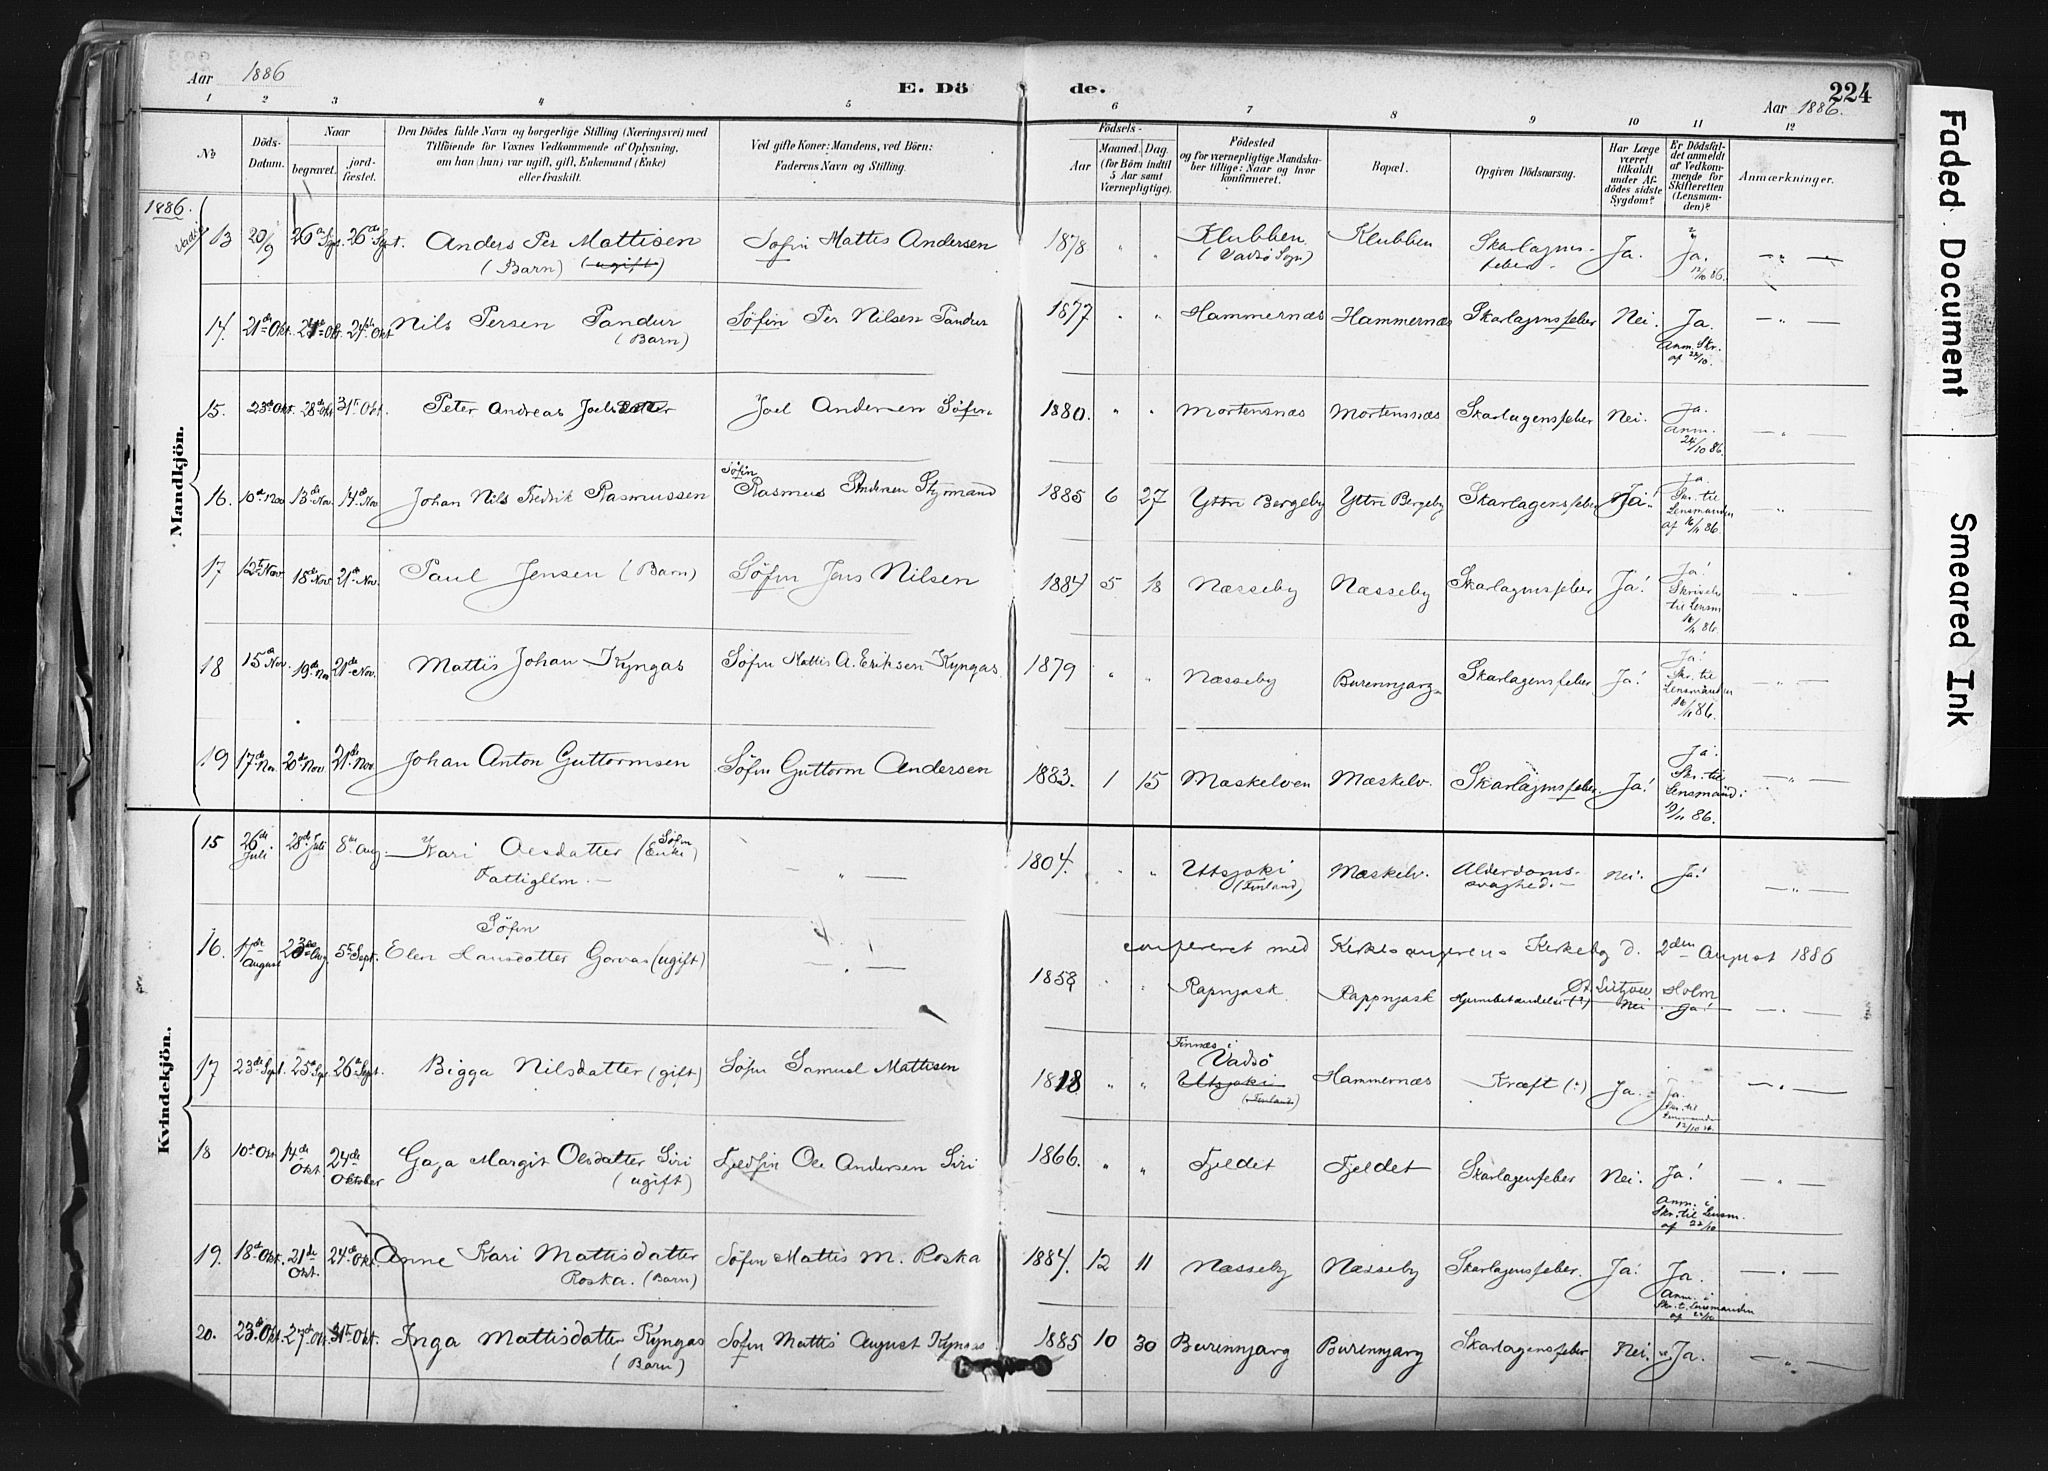 Aar 1886
E. Dö de.
224
Aar 1886.
1 2 3 4 5 6 7 8 9 10 11 12
No
Döds-Datum.
Naar
begravet.
jord-fæstet.
Den Dödes fulde Navn og borgerlige Stilling (Næringsvei) med
Tilföiende for Voxnes Vedkommende af Oplysning,
om han (hun) var ugift, gift, Enkemand (Enke)
eller fraskilt.
Ved gifte Koner: Mandens, ved Börn:
Faderens Navn og Stilling.
Födsels-
Aar
Maaned. Dag.
(for Börn indtil
5 Aar samt
Værnepligtige).
Födested
og for værnepligtige Mandska-
ber tillige: Naar og hvor
konfirmeret.
Bopæl.
Opgiven Dödsaarsag.
Har Læge
været
tilkaldt
under Af-
dödes sidste
Sygdom?
Er Dödsfal-
det anmeldt
af Vedkom-
mende for
Skifteretten
(Lensman-
den)?
Anmærkninger.
1886.
Mandkjön.
Vadsö 13 20/9 26de Sept. 26de Sept. Anders Per Mattisen Søfin Mattis Andersen 1878 " " Klubben Klubben Skarlagens- Ja. Ja.
(Barn) (ugift) (Vadsø Sogn) feber 12/10 86.
14. 21de Okt. 24de Okt. 24de Okt Nils Persen Pandur Søfin Per Nilsen Pandur 1877 " " Hammernæs Hammernæs Skarlagensfeber Nei. Ja.
(Barn) Anm. Skr.
af 22/10.
15. 23de Okt. 28de Okt 31te Okt. Peter Andreas Joelsen Joel Andersen Søfin 1880. " " Mortensnæs Mortensnæs Skarlagensfeber Nei. Ja.
Anm.
24/10 86.
16. 10de Nov 13de Nov. 14de Nov Johan Nils Fredrik Rasmussen Søfin Rasmus Andersen Styrmand 1885 6 27 Yttre Bergeby Yttre Bergeby Skarlagensfeber Ja! Ja.
Skr. til
Lensmanden
af 16/11 86.
17 12te Nov 18de Nov 21de Nov. Paul Jensen (Barn) Søfin Jens Nilsen 1884 5 18 Næsseby Næsseby Skarlagensfeber Ja! Ja!
til Lensm
16/11 86.
18 15de Nov. 19de Nov 21de Nov. Mattis Johan Kyngas Søfin Mattis A. Eriksen Kyngas 1879 " " Næsseby Burennjarg Skarlagensfeber Ja! Ja!
Skr. til
Lensmanden
16/11 86.
19 17de Nov. 20de Nov 21de Nov Johan Anton Guttormsen Søfin Guttorm Andersen 1883. 1 15 Mæskelven Mæskelv. Skarlagensfeber. Ja! Ja.
Skr. til
Lensmand:
19/11 86.
Kvindekjön.
15 26de Juli 28de Juli 8de Aug. Kari Olsdatter (Søfin Enke) — " — 1804. " " Utsjoki Mæskelv. Alderdoms- Nei. Ja!
Fattiglem. — (Finland) svaghed. —
Søfin
16. 17de August 23de Aug. 5te Sept. Elen Hansdatter Gorvas (ugift) — . —
confereret med Kirkesangerens Kirkebog d. 2den August 1886
Lützow Holm
1858 " " Rapnjask Rappnjask Nei. Ja!
17 23de Sept. 25de Sept 26de Sept. Bigga Nilsdatter (gift) Søfin Samuel Mattisen 1818. " " Finnæs i Vadsö Hammernæs Kræft (?) Ja. Ja.
Utsjoki
(Finland)
Skr. til
Lensmanden
12/10 86.
18 10de Okt 14de Okt. 24de Oktober Gaja Margit Olsdatter Siri Fjeldfin Ole Andersen Siri 1866. " " Fjeldet Fjeldet Skarlagenfeber Nei. Ja!
(ugift) Anm. i
Skr. til Lensm.
af 22/10
19. 18de Okt. 21de Okt. 24de Okt. Anne Kari Mattisdatter Søfin Mattis M. Roska 1884. 12 11 Næsseby Næsseby Skarlagensfeber. Ja! Ja.
Roska. (Barn) Anm. i
Skr. t. Lensmanden
af 22/10
20. 23de Okt. 27de Okt. 31te Okt. Inga Mattisdatter Kyngas Søfin Mattis August Kyngas 1885 10 30 Burennjarg Burennjarg Skarlagensfeber Nei. Ja.
(Barn)
Faded Document
Smeared Ink